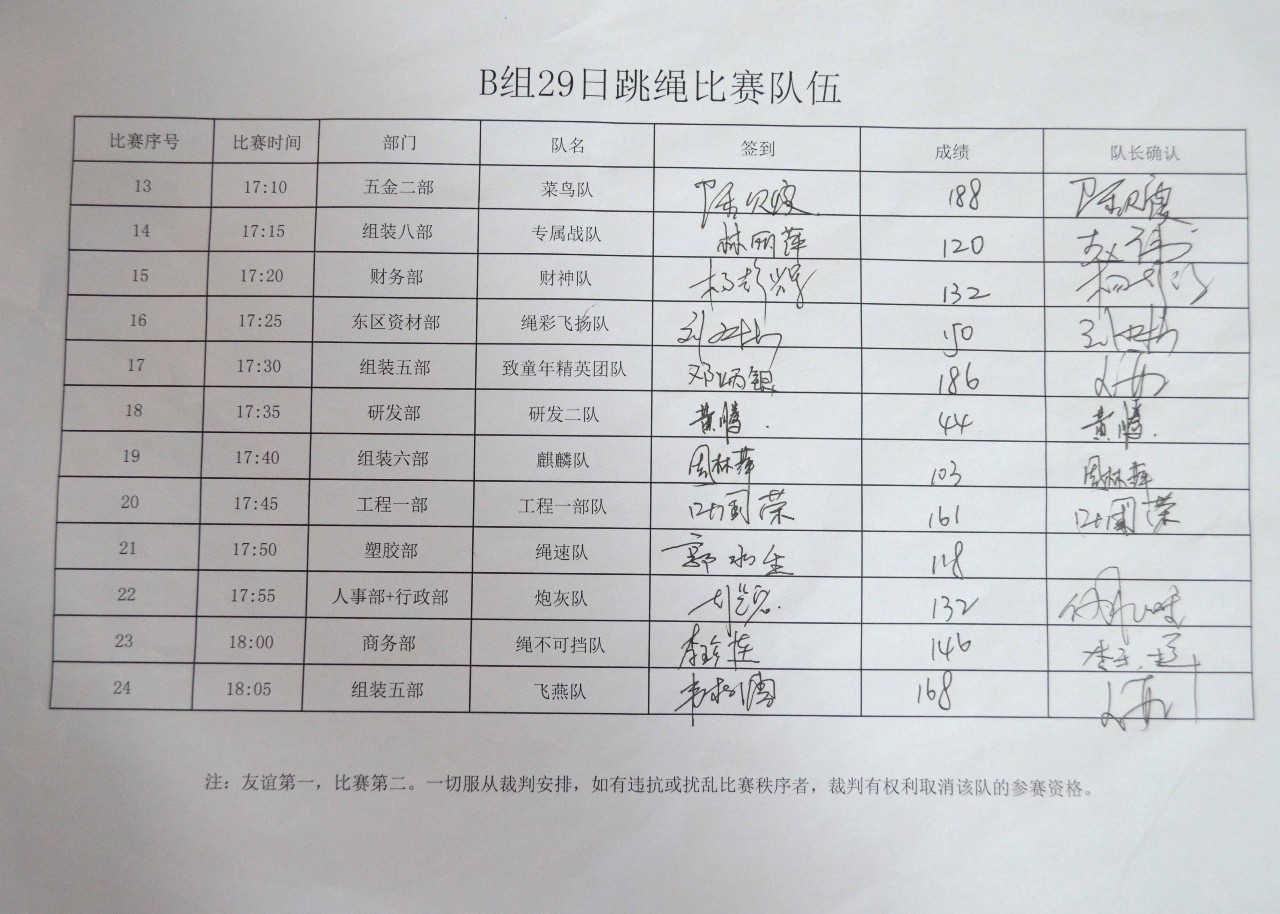 B组29日跳绳比赛队伍
比赛序号 比赛时间 部门 队名 签到 成绩 队长确认
13 17:10 五金二部 菜鸟队 188
14 17:15 组装八部 专属战队 林丽萍 120
15 17:20 财务部 财神队 132
16 17:25 东区资材部 绳彩飞扬队 150
17 17:30 组装五部 致童年精英团队 邓炳银 186
18 17:35 研发部 研发二队 黄腾 44 黄腾
19 17:40 组装六部 麒麟队 周林萍 103 周林萍
20 17:45 工程一部 工程一部队 叶国荣 161 叶国荣
21 17:50 塑胶部 绳速队 郭水生 118
22 17:55 人事部+行政部 炮灰队 132
23 18:00 商务部 绳不可挡队 146
24 18:05 组装五部 飞燕队 168
注：友谊第一，比赛第二。一切服从裁判安排，如有违抗或扰乱比赛秩序者，裁判有权利取消该队的参赛资格。